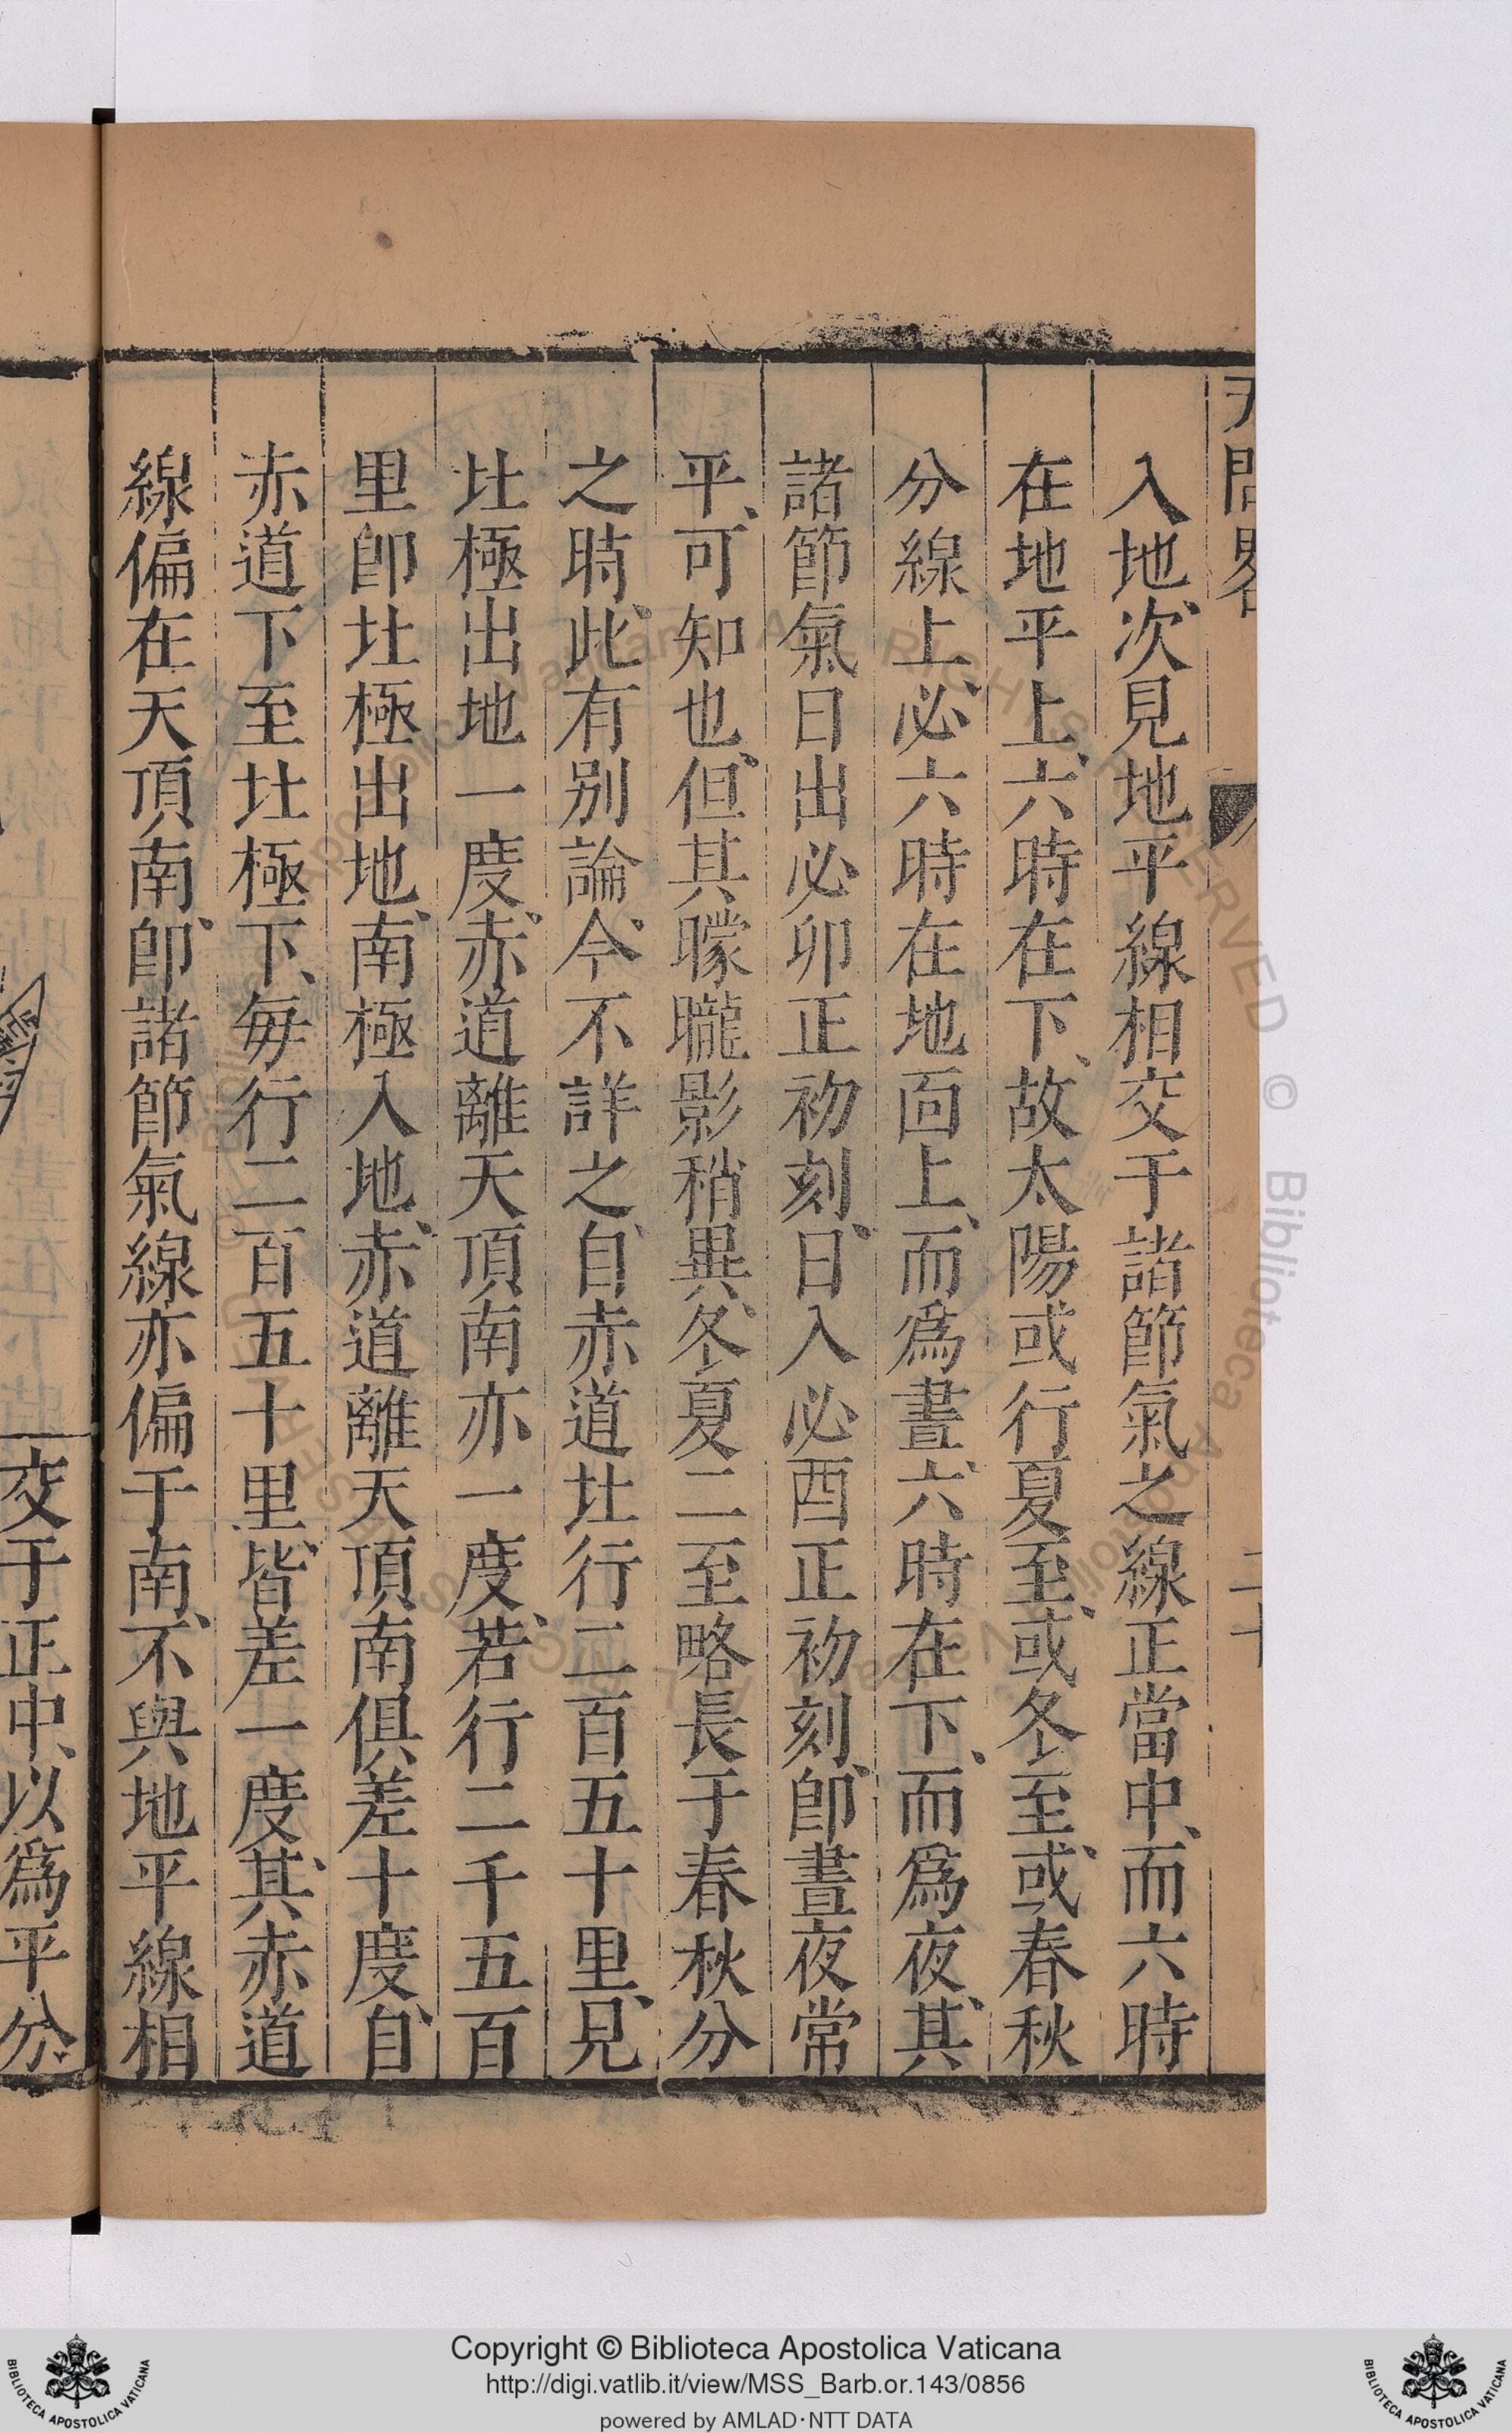 天問畧
二十
入地、次見地平線相交于諸節氣之線正當中、而六時
在地平上、六時在下、故太陽或行夏至、或冬至、或春秋
分線上、必六時在地面上、而爲晝、六時在下、而爲夜、其
諸節氣日出必卯正初刻、日入必酉正初刻、卽晝夜常
平、可知也、但其曚曨影稍異、冬夏二至略長于春秋分
之時、此有别論、今不詳之、自赤道北行二百五十里、見
北極出地一度、赤道離天頂南亦一度、若行二千五百
里卽北極出地、南極入地、赤道離天頂南俱差十度、自
赤道下至北極下、每行二百五十里、皆差一度、其赤道
線偏在天頂南、卽諸節氣線亦偏于南、不與地平線相
交于正中、以爲平分
Copyright © Biblioteca Apostolica Vaticana
http://digi.vatlib.it/view/MSS_Barb.or.143/0856
powered by AMLAD·NTT DATA
BIBLIOTECA APOSTOLICA VATICANA
BIBLIOTECA APOSTOLICA VATICANA